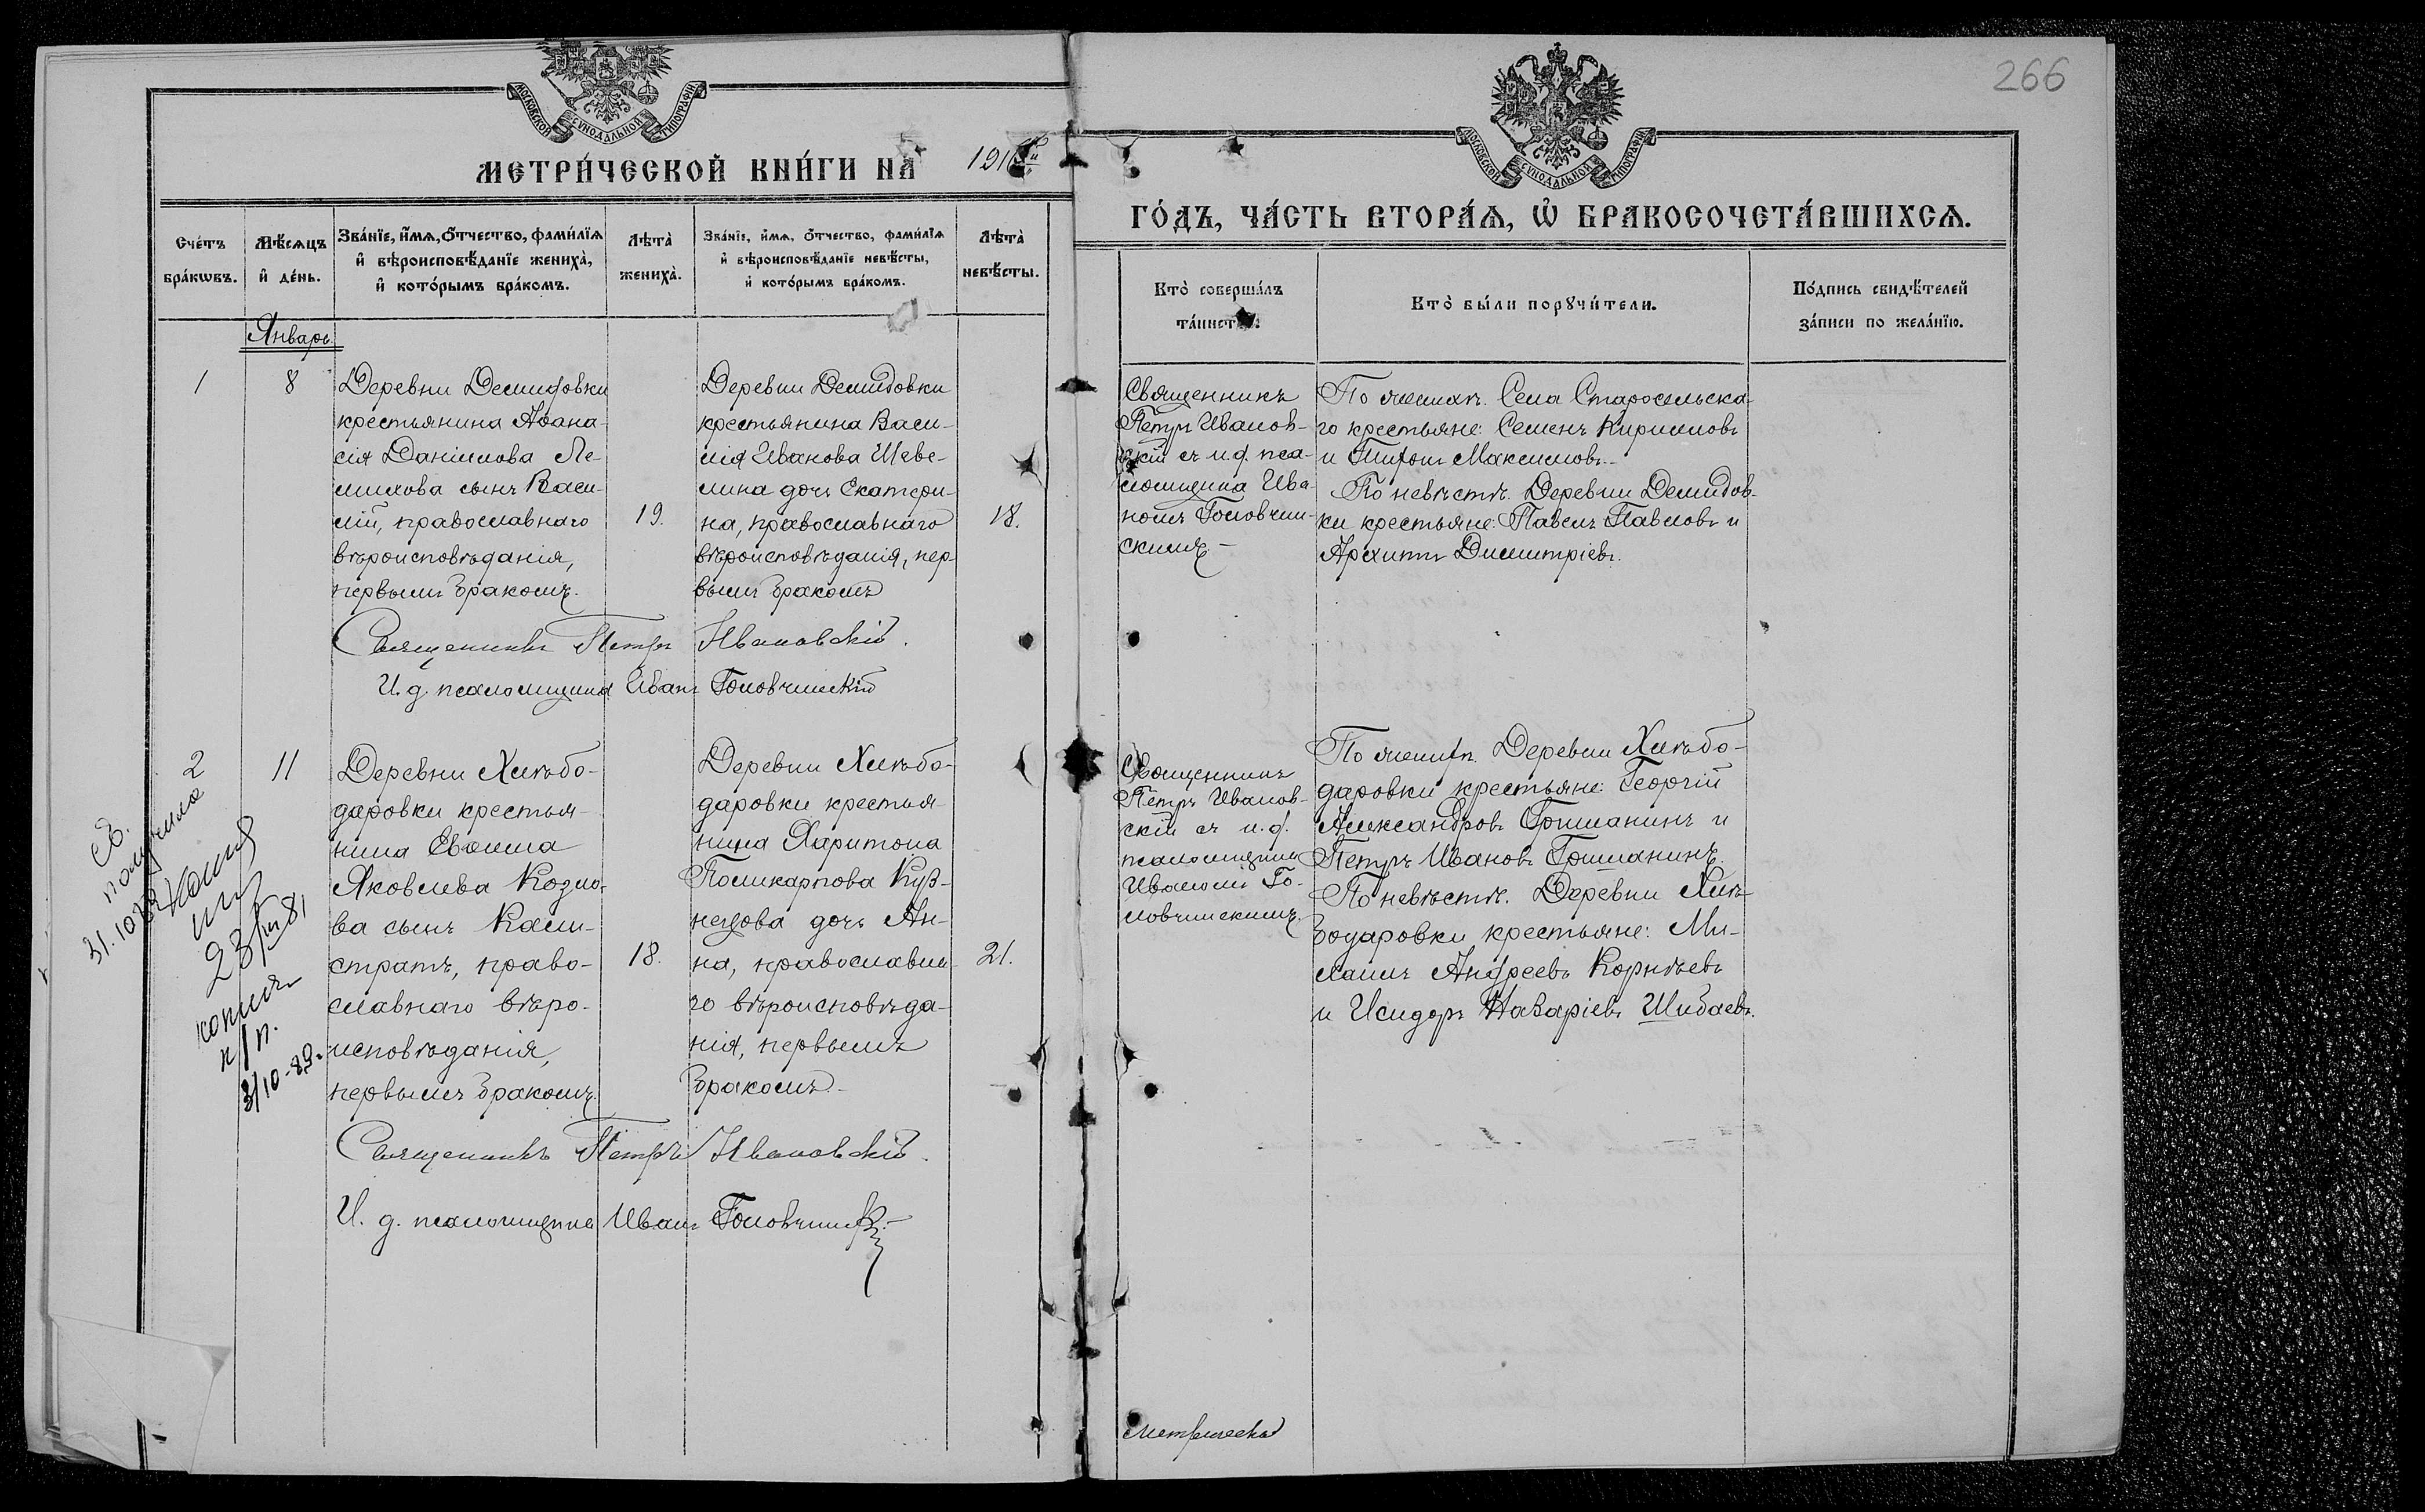 266
МОСКОВСКОЙ СѴНОДАЛЬНОЙ ТИПОГРАФІИ
МОСКОВСКОЙ СѴНОДАЛЬНОЙ ТИПОГРАФІИ
МЕТРИ́ЧЕСКОЙ КНИ́ГИ НА 191
ГО́ДЪ, ЧА́СТЬ ВТОРА́Ѧ, Ѽ БРАКОСОЧЕТА́ВШИХСѦ.
Сче́тъ бра́кѡвъ.
Мѣ́сѧцъ и҆ де́нь.
Зва́нїе, и҆́мѧ, ѻ҆́тчество, фами́лїѧ и҆ вѣроисповѣ́данїе жениха̀, и҆ кото́рымъ бра́комъ.
Лѣта̀ жениха̀.
Зва́нїе, и҆́мѧ, ѻ҆́тчество, фами́лїѧ и҆ вѣроисповѣ́данїе невѣ́сты, и҆ кото́рымъ бра́комъ.
Лѣта̀ невѣ́сты.
Кто̀ соверша́лъ
Кто̀ бы́ли порꙋчи́тели.
По́дпись свидѣ́телей за́писи по жела́нїю.
Январь
1
8
Деревни Демидовки
крестьянина Аѳана-
сія Даніилова Ле-
михова сынъ Васи-
лій, православнаго
вѣроисповѣданія,
первымъ бракомъ.
19.
Деревни Демидовки
крестьянина Васи-
лія Иванова Шеве-
лина дочь Екатери-
на, православнаго
вѣроисповѣданія, пер-
вымъ бракомъ
18.
Священникъ
Петръ Иванов-
скій съ и.д. пса-
ломщика Ива-
номъ Головчин-
скимъ
По женихѣ. Села Старосельска-
го крестьяне: Семенъ Кирилловъ
и Тихонъ Максимовъ.
По невѣстѣ. Деревни Демидов-
ки крестьяне: Павелъ Павловъ и
Архипъ Димитріевъ.
Священникъ Петръ Ивановскій.
И. д. псаломщика Иванъ Головчинскій
2
11
Деревни Хлѣбо-
даровки крестья-
нина Евѳима
Яковлева Козло-
ва сынъ Кали-
стратъ, право-
славнаго вѣро-
исповѣданія,
первымъ бракомъ.
18.
Деревни Хлѣбо-
даровки крестья-
нина Харитона
Поликарпова Куз-
нецова дочь Ан-
на, православна-
го вѣроисповѣда-
нія, первымъ
бракомъ.
21.
Священникъ
Петръ Иванов-
скій съ и.д.
псаломщика
Иваномъ Го-
ловчинскимъ.
По женихѣ. Деревни Хлѣбо-
даровки крестьяне: Георгій
Александровъ Гришанинъ и
Петръ Ивановъ Гришанинъ.
По невѣстѣ. Деревни Хлѣ-
бодаровки крестьяне: Ми-
хаилъ Андреевъ Корнѣевъ
и Исидоръ Назаріевъ Шибаевъ.
Священникъ Петръ Ивановскій.
И. д. псаломщика Иванъ
Св.
получила
копия
23/VII 81
копия
н/п.
3/10-89.